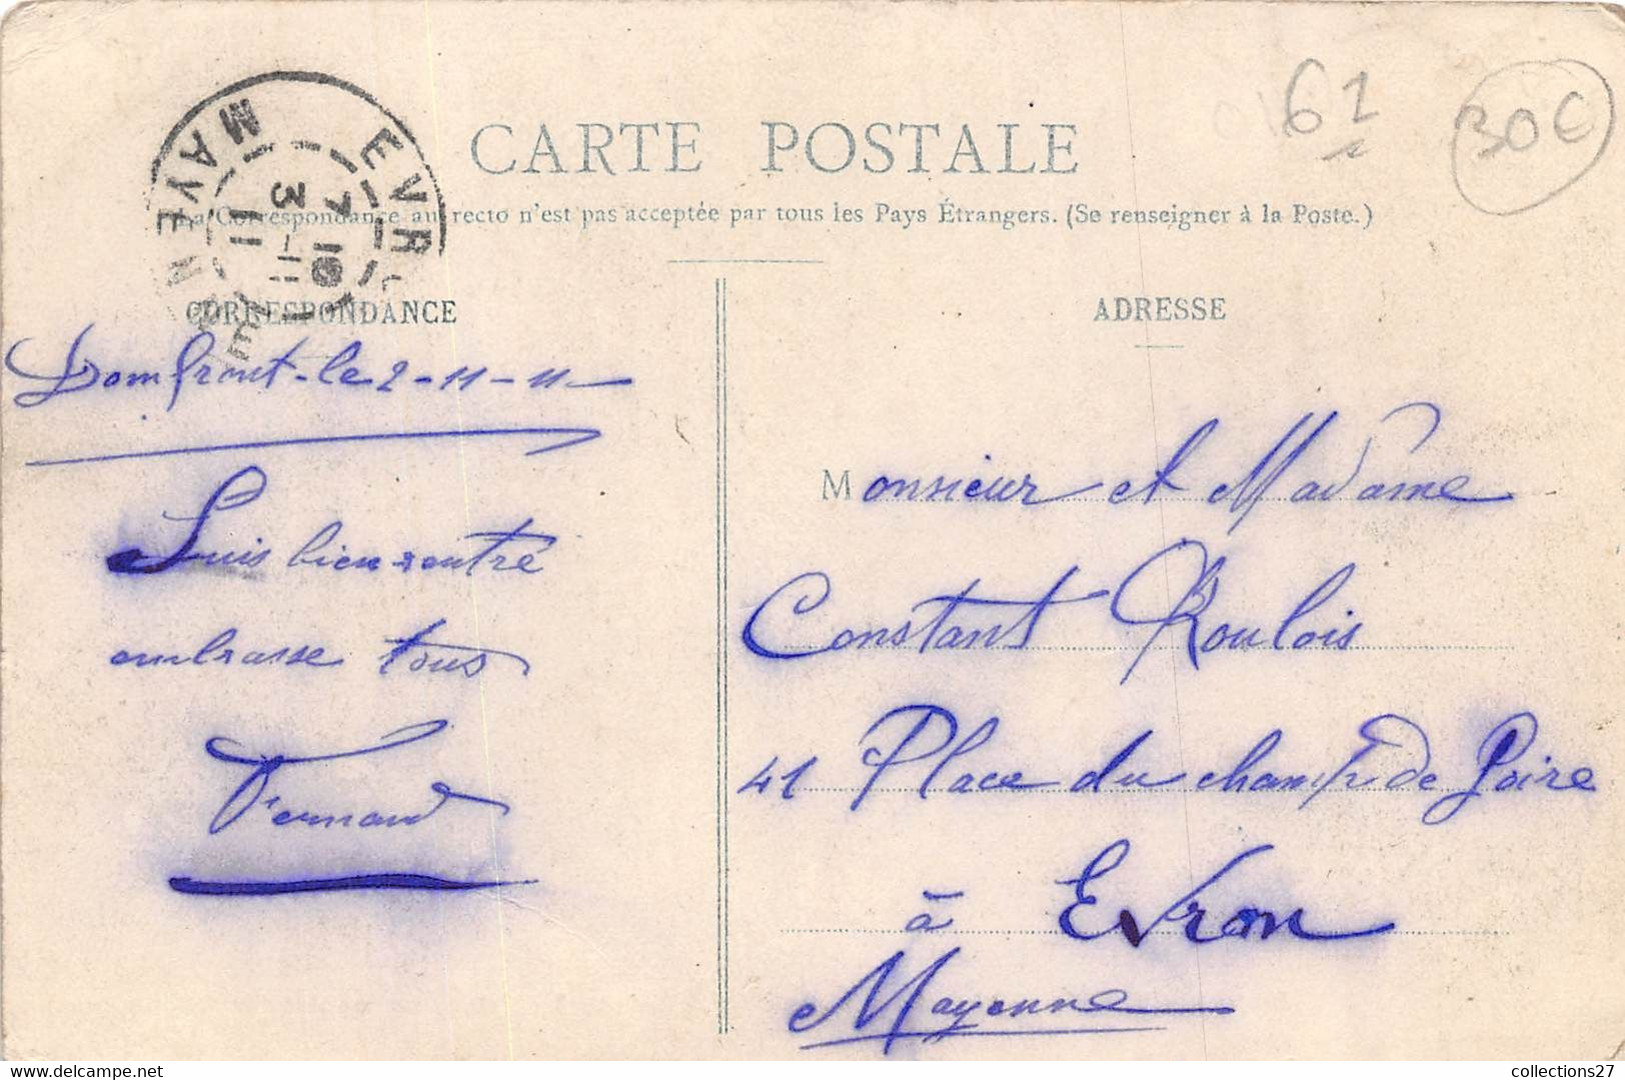 CARTE POSTALE
61
30€
La Correspondance au recto n'est pas acceptée par tous les Pays Étrangers. (Se renseigner à la Poste.)
EVRON
MAYENNE
7
3 - 11
11
CORRESPONDANCE
Domfront - le 2 - 11 - 11
Suis bien rentré
embrasse tous
Fernand
ADRESSE
Monsieur et Madame
Constant Roulois
41 Place du champ de Foire
à Evron
Mayenne
www.delcampe.net
collections27